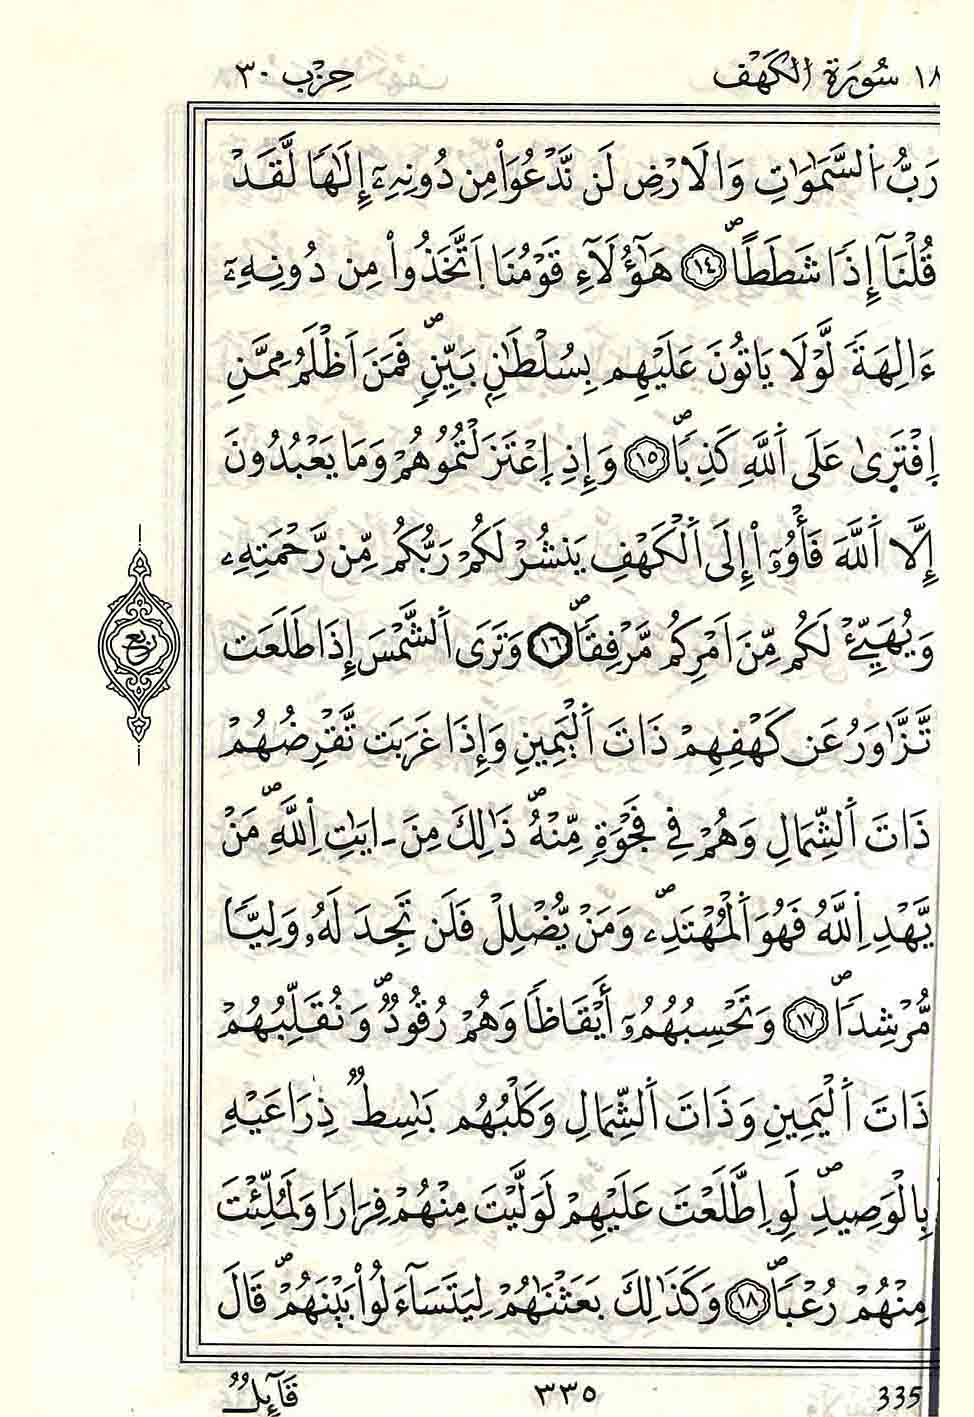 ١٨ سُورَةُ الْكَهْفِ حِزْب ٣٠
رَبُّ اُ۬لسَّمَٰوَٰتِ وَالَارْضِ لَن نَّدْعُوَاْ مِن دُونِهِۦٓ إِلَٰهاٗ لَّقَدْ
قُلْنَآ إِذاٗ شَطَطاًۖ ١٤ هَٰٓؤُلَآءِ قَوْمُنَا اَ۪تَّخَذُواْ مِن دُونِهِۦٓ
ءَالِهَةٗ لَّوْلَا يَاتُونَ عَلَيْهِم بِسُلْطَٰنِۢ بَيِّنٖۖ فَمَنَ اَظْلَمُ مِمَّنِ
اِ۪فْتَر۪ىٰ عَلَى اَ۬للَّهِ كَذِباٗۖ ١٥ وَإِذِ اِ۪عْتَزَلْتُمُوهُمْ وَمَا يَعْبُدُونَ
إِلَّا اَ۬للَّهَ فَأْوُۥٓاْ إِلَى اَ۬لْكَهْفِ يَنشُرْ لَكُمْ رَبُّكُم مِّن رَّحْمَتِهِۦ
وَيُهَيِّۓْ لَكُم مِّنَ اَمْرِكُم مَّرْفِقاٗۖ ١٦ وَتَرَى اَ۬لشَّمْسَ إِذَا طَلَعَت
تَّزَّٰوَرُ عَن كَهْفِهِمْ ذَاتَ اَ۬لْيَمِينِ وَإِذَا غَرَبَت تَّقْرِضُهُمْ
ذَاتَ اَ۬لشِّمَالِ وَهُمْ فِے فَجْوَةٖ مِّنْهُۖ ذَٰلِكَ مِنَ اٰيَٰتِ اِ۬للَّهِۖ مَنْ
يَّهْدِ اِ۬للَّهُ فَهُوَ اَ۬لْمُهْتَدِۦۖ وَمَنْ يُّضْلِلْ فَلَن تَجِدَ لَهُۥ وَلِيّاٗ
مُّرْشِداٗۖ ١٧ وَتَحْسِبُهُمُۥٓ أَيْقَاظاٗ وَهُمْ رُقُودٞۖ وَنُقَلِّبُهُمْ
ذَاتَ اَ۬لْيَمِينِ وَذَاتَ اَ۬لشِّمَالِ وَكَلْبُهُم بَٰسِطٞ ذِرَاعَيْهِ
بِالْوَصِيدِۖ لَوِ اِ۪طَّلَعْتَ عَلَيْهِمْ لَوَلَّيْتَ مِنْهُمْ فِرَاراٗ وَلَمُلِّئْتَ
مِنْهُمْ رُعْباٗۖ ١٨ وَكَذَٰلِكَ بَعَثْنَٰهُمْ لِيَتَسَآءَلُواْ بَيْنَهُمْۖ قَالَ
ربع
335 ٣٣٥ قَآئِلٞ